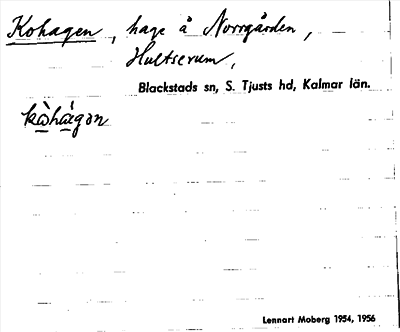 Kohagen, hage å Norrgården,
Hultserum,
Blackstads sn, S. Tjusts hd, Kalmar län.
kòhágən
Lennart Moberg 1954, 1956